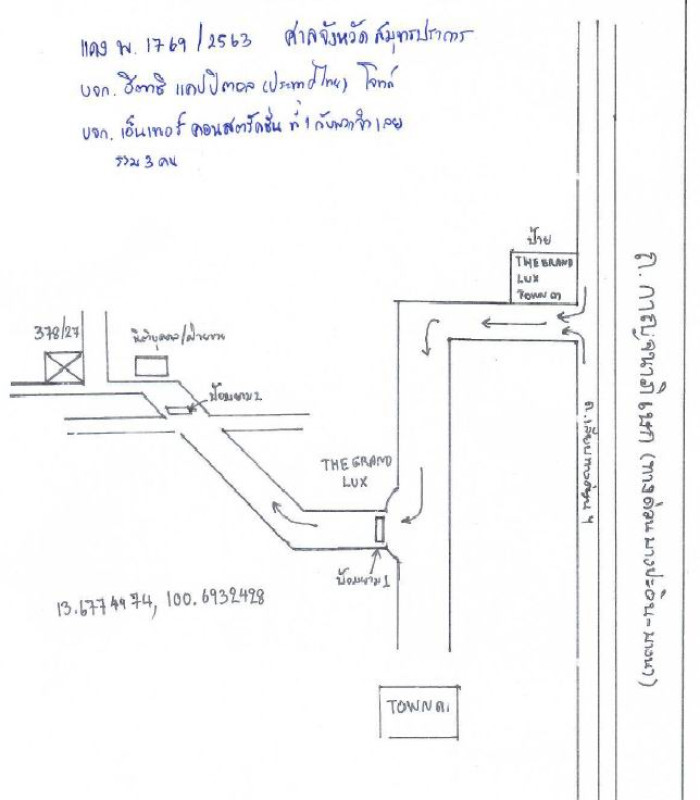 แดง พ. 1769/2563 ศาลจังหวัดสมุทรปราการ
บจก. ฮิตาชิ แคปปิตอล (ประเทศไทย) โจทก์
บจก. เอ็นเทอร์ คอนสตรัคชั่น ที่ 1 กับพวกจำเลย
รวม 3 คน
ป้าย
THE GRAND
LUX
TOWN
ถ. กาญจนาภิเษก (ทางด่วนบางปะอิน-บางนา)
ถ. เลียบทางด่วนฯ
378/27
นิติบุคคล/ฝ่ายขาย
ป้อมยาม 2
THE GRAND
LUX
ป้อมยาม 1
13.6774974, 100.6932428
TOWN